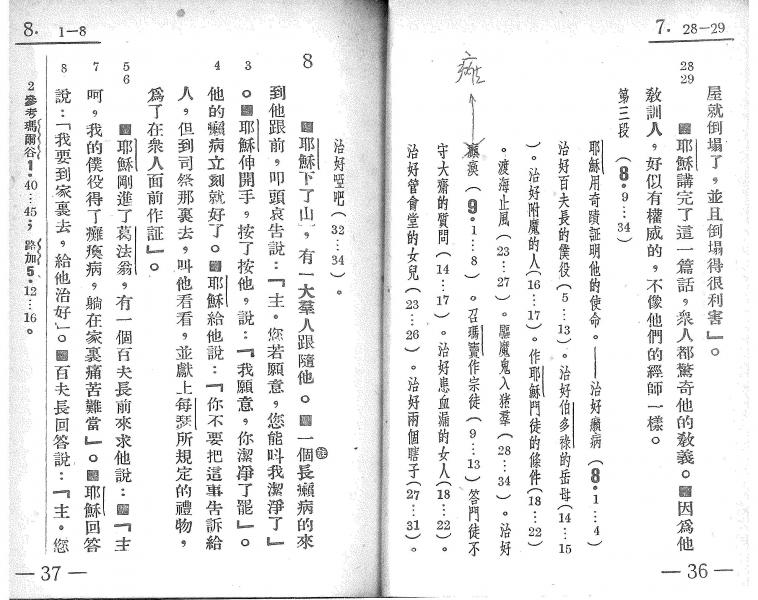 7. 28—29
屋就倒塌了，並且倒塌得很利害」。
28 29 耶穌講完了這一篇話，衆人都驚奇他的敎義。因爲他
敎訓人，好似有權威的，不像他們的經師一樣。
第三段（8·9…34）
耶穌用奇蹟証明他的使命。——治好癩病（8·1…4）
治好百夫長的僕役（5…13）。治好伯多祿的岳母（14…15
）。治好附魔的人（16…17）。作耶穌門徒的條件（18…22）
。渡海止風（23…27）。驅魔鬼入猪羣（28…34）。治好
癱瘓（9·1…8）。召瑪竇作宗徒（9…13）答門徒不
守大齋的質問（14…17）。治好患血漏的女人（18…22）。
治好管會堂的女兒（23…26）。治好兩個瞎子（27…31）。
— 36 —
8. 1—8
治好啞吧（32…34）。
8 耶穌下了山，有一大羣人跟隨他。一個長癩病的來
到他跟前，叩頭哀告說：「主。您若願意，您能呌我潔淨了」
3 。耶穌伸開手，按了按他，說：「我願意，你潔凈了罷」。
4 他的癩病立刻就好了。耶穌給他說：「你不要把這事告訴給
人，但到司祭那裏去，呌他看看，並獻上每瑟所規定的禮物，
爲了在衆人面前作証」。
5 6 耶穌剛進了葛法翁，有一個百夫長前來求他說：「主
7 呵，我的僕役得了癱瘓病，躺在家裏痛苦難當」。耶穌回答
8 說：「我要到家裏去，給他治好」。百夫長回答說：「主。您
2 參考瑪爾谷1·40…45；路加5·12…16。
— 37 —